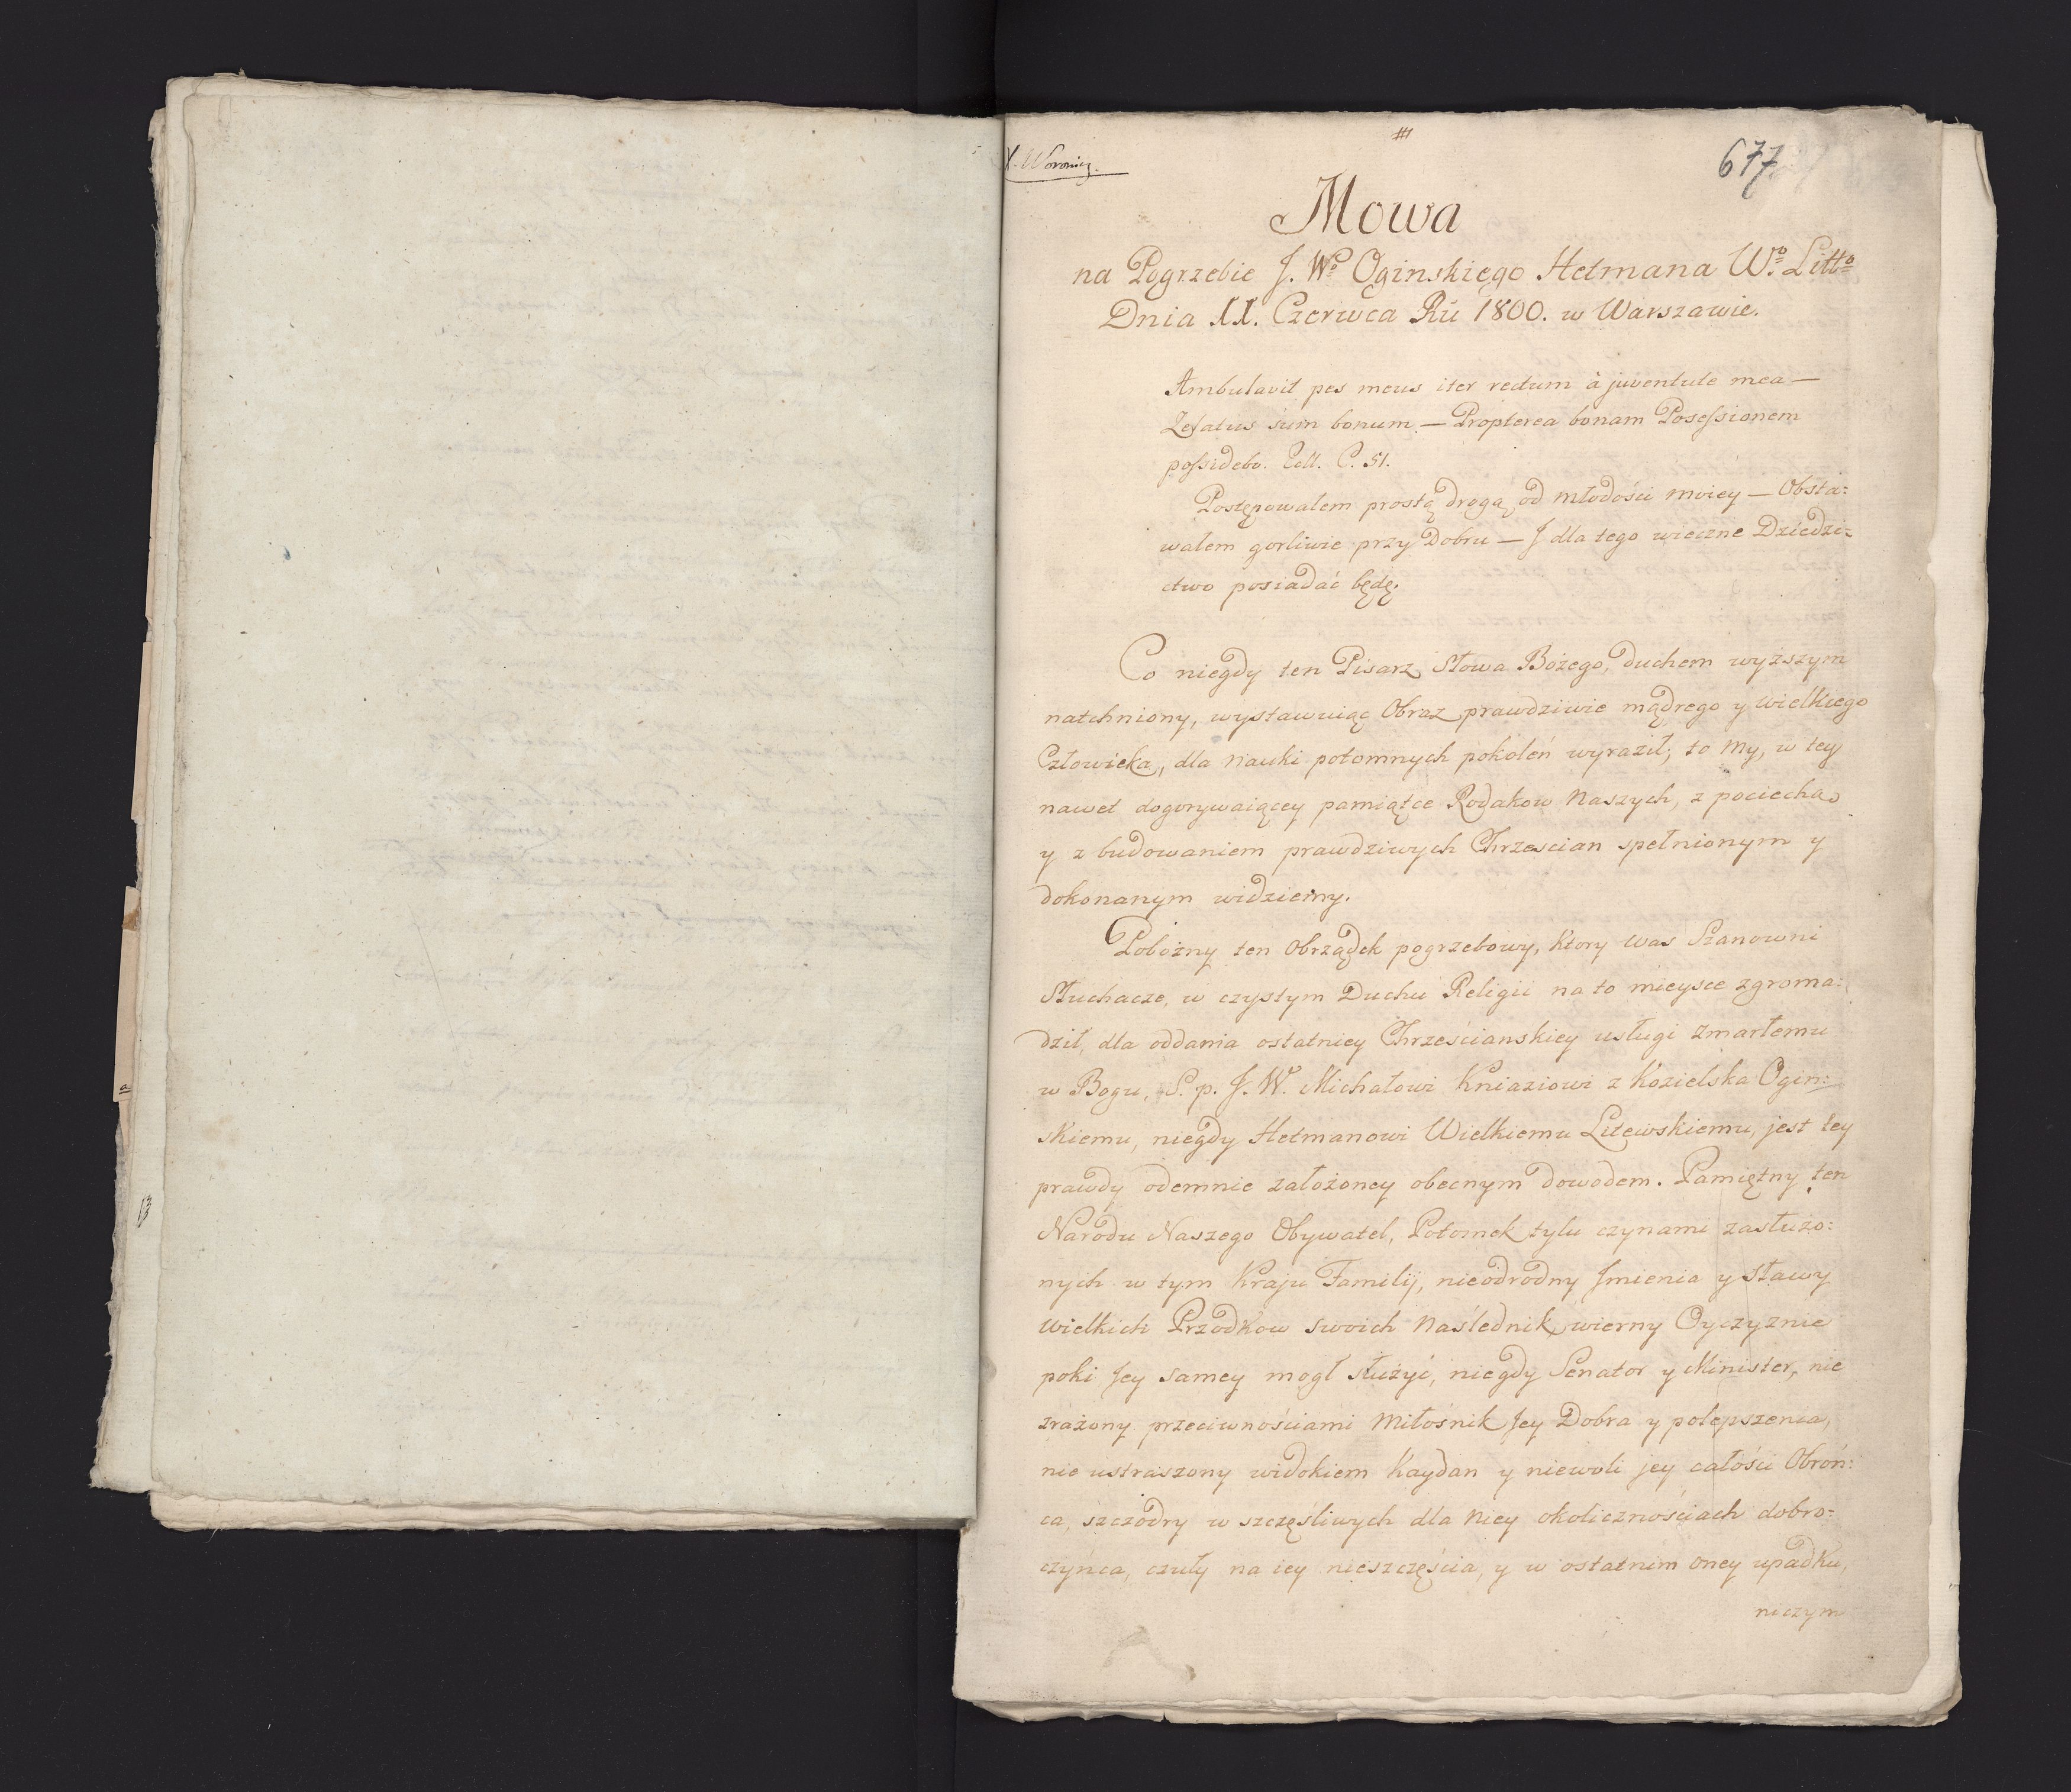 X. Woronicz.
677
Mowa
na Pogrzebie J. Wo Oginskiego Hetmana Wo. Litto
Dnia XX. Czerwca Ru 1800. w Warszawie.
Ambulavit pes meus iter rectum à juventute mea —
Zelatus sum bonum. — Propterea bonam Posessionem
possidebo. Eccl. C. 51.
Postępowałem prostą drogą od młodości moiey — Obsta=
wałem gorliwie przy Dobru — J dla tego wieczne Dziedzi=
ctwo posiadać będę.
Co niegdy ten Pisarz Słowa Bożego, duchem wyższym
natchniony, wystawuiąc Obraz prawdziwie mądrego y wielkiego
Człowieka, dla nauki potomnych pokoleń wyraził; to my, w tey
nawet dogorywaiącey pamiątce Rodakow Naszych, z pociechą
y z budowaniem prawdziwych Chrzescian spełnionym y
dokonanym widziemy.
Pobożny ten Obrządek pogrzebowy, ktory was Szanowni
Słuchacze, w czystym Duchu Religii na to mieysce zgroma=
dził, dla oddania ostatniey Chrzescianskiey usługi zmarłemu
w Bogu, S. p. J. W. Michałowi Kniaziowi z Kozielska Ogin=
skiemu, niegdy Hetmanowi Wielkiemu Litewskiemu, jest tey
prawdy odemnie założoney obecnym dowodem. Pamiętny ten
Narodu Naszego Obywatel, Potomek tylu czynami zasłużo=
nych w tym Kraju Familij, nieodrodny Jmienia y sławy
wielkich Przodkow swoich Naślednik, wierny Oyczyznie
poki Jey samey mogł służyć, niegdy Senator y Minister, nie
zrażony przeciwnościami Miłośnik Jey Dobra y polepszenia,
nie ustraszony widokiem Kaydan y niewoli jey całości Obroń=
ca, szczodry w szczęśliwych dla Niey okolicznościach dobro=
czynca, czuły na iey nieszczęścia, y w ostatnim oney upadku,
niczym